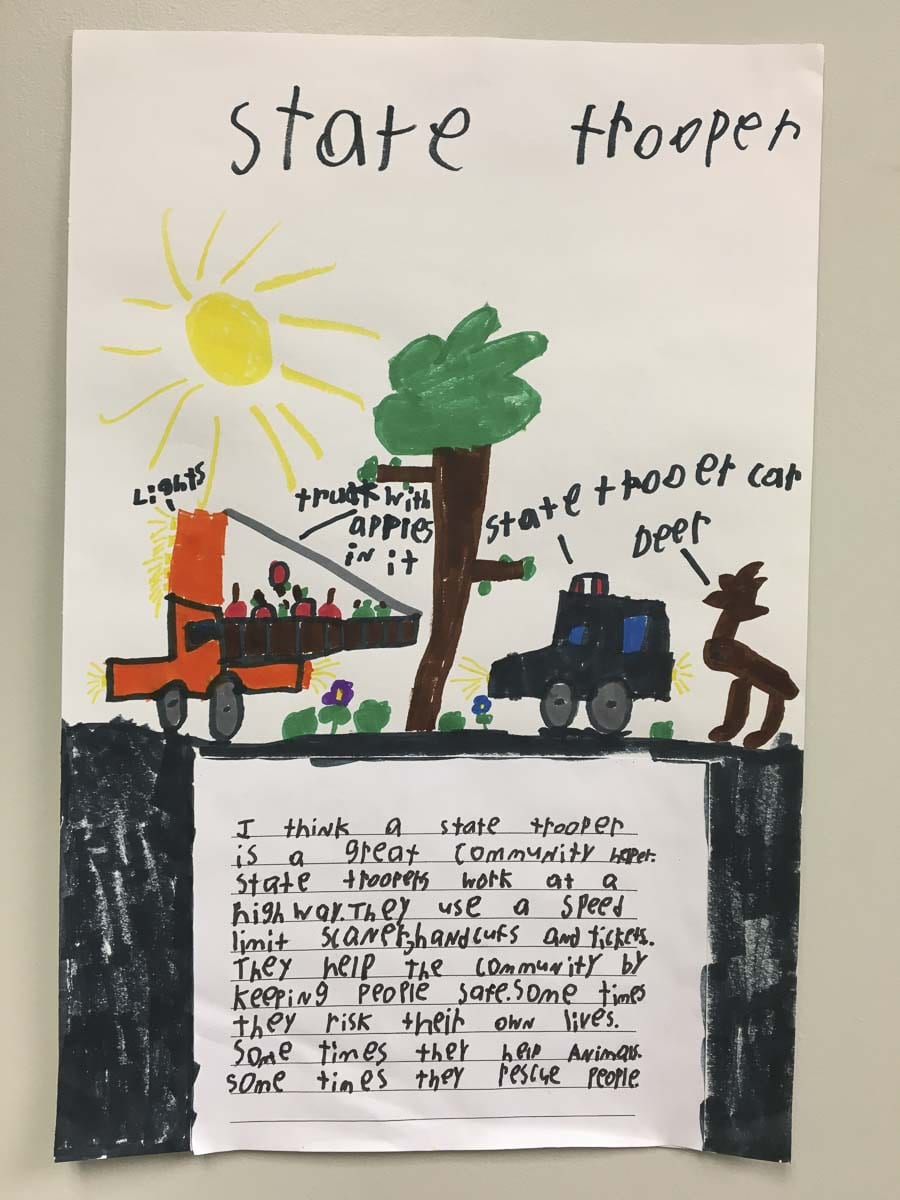 state trooper
Lights
truck with
apples
in it
state trooer car
Deer
I think a state trooper
is a great community heper.
state troopers work at a
high way. They use a speed
limit scaner, handcufs and tickets.
They help the community by
keeping people safe. Some times
they risk their own lives.
Some times they help Animals.
Some times they rescue people.